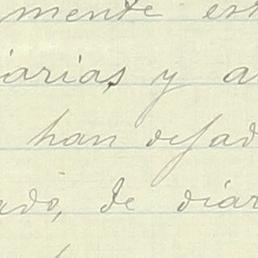 mente est
iarias y a
han dejad
ado, de diar